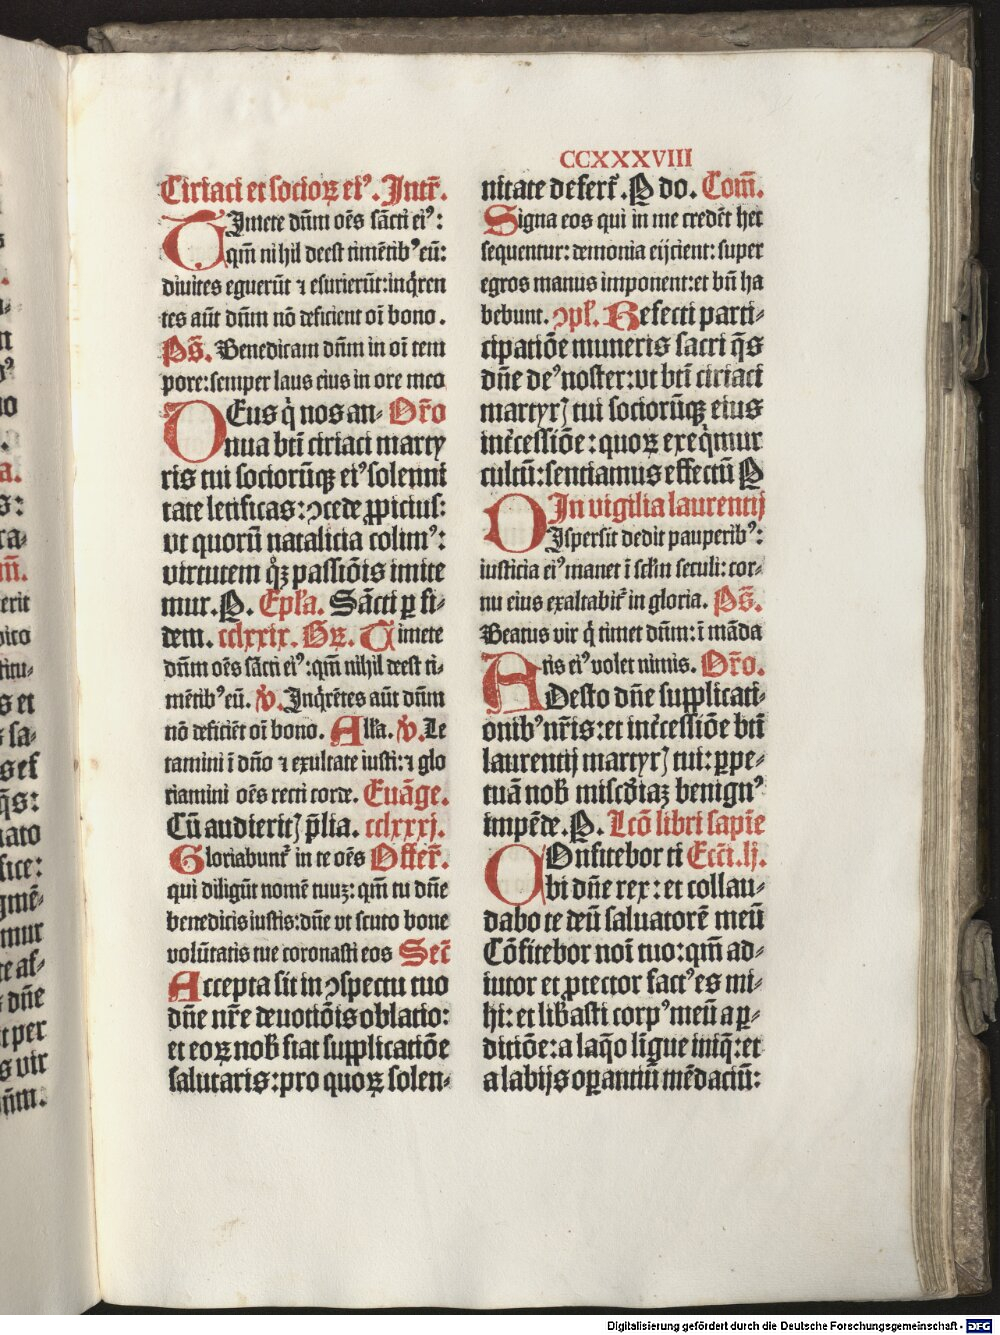 CCXXXVIII
Ciriaci et socioꝝ eiꝰ. Intr̄.
Timete dn̄m oēs sācti eiꝰ:
qm̄ nihil deest timētibꝰ eū:
diuites eguerūt ⁊ esurierūt: inq̇ren
tes aūt dn̄m nō deficient oī bono.
Ps̄. Benedicam dn̄m in oī tem
pore: semper laus eius in ore meo
DEus q̇ nos an⸗ Or̄o
nua bt̄i ciriaci marty
ris tui sociorūqꝫ eiꝰ solenni
tate letificas: ꝯcede ꝓpicius:
vt quorū natalicia colimꝰ:
virtutem q̊ꝫ passiōis imite
mur. P. Epl̄a. Sācti ꝑ fi⸗
dem. cclxxix. Gꝝ. Timete
dn̄m oēs sācti eiꝰ: qm̄ nihil deest ti⸗
mētibꝰ eū. ℣. Inq̇rētes aūt dn̄m
nō deficiēt oī bono. All̄a. ℣. Le
tamini ī dn̄o ⁊ exultate iusti: ⁊ glo
riamini oēs recti corde. Euāge.
Cū audieritꝭ p̄lia. cclxxxj.
Gloriabunt᷑ in te oēs Offer̄.
qui diligūt nomē tuuꝫ: qm̄ tu dn̄e
benedicis iustis: dn̄e vt scuto bone
volūtatis tue coronasti eos Secr̄
Accepta sit in ꝯspectu tuo
dn̄e nr̄e deuotiōis oblatio:
et eoꝝ nob̄ fiat supplicatiōe
salutaris: pro quoꝝ solen⸗
nitate defert᷑. P do. Com̄.
Signa eos qui in me credēt hec
sequentur: demonia eijcient: super
egros manus imponent: et bn̄ ha
bebunt. ꝯpl̄. Refecti parti⸗
cipatiōe muneris sacri q̄s
dn̄e deꝰ noster: vt bt̄i ciriaci
martyrꝭ tui sociorūqꝫ eius
int̄cessiōe: quoꝝ exeq̇mur
cultū: sentiamus effectū P
In vigilia laurentij
DIspersit dedit pauperibꝰ:
iusticia eiꝰ manet ī sc̄lm seculi: cor⸗
nu eius exaltabit᷑ in gloria. Ps̄.
Beatus vir q̇ timet dn̄m: ī māda
tis eiꝰ volet nimis. Or̄o.
ADesto dn̄e supplicati⸗
onibꝰ nr̄is: et int̄cessiōe bt̄i
laurentij martyrꝭ tui: ꝑpe⸗
tuā nob̄ misc̄diaꝫ benignꝰ
impēde. P. Lcō libri sapiē
COnfitebor ti Ecc̄i. lj.
bi dn̄e rex: et collau⸗
dabo te deū saluatorē meū
Cōfitebor noī tuo: qm̄ ad⸗
iutor et ꝓtector factꝰ es mi⸗
hi: et lib̄asti corpꝰ meū a ꝑ⸗
ditiōe: a laq̊o līgue iniq̄: et
a labijs oꝑantiū mēdaciū:
Digitalisierung gefördert durch die Deutsche Forschungsgemeinschaft - DFG